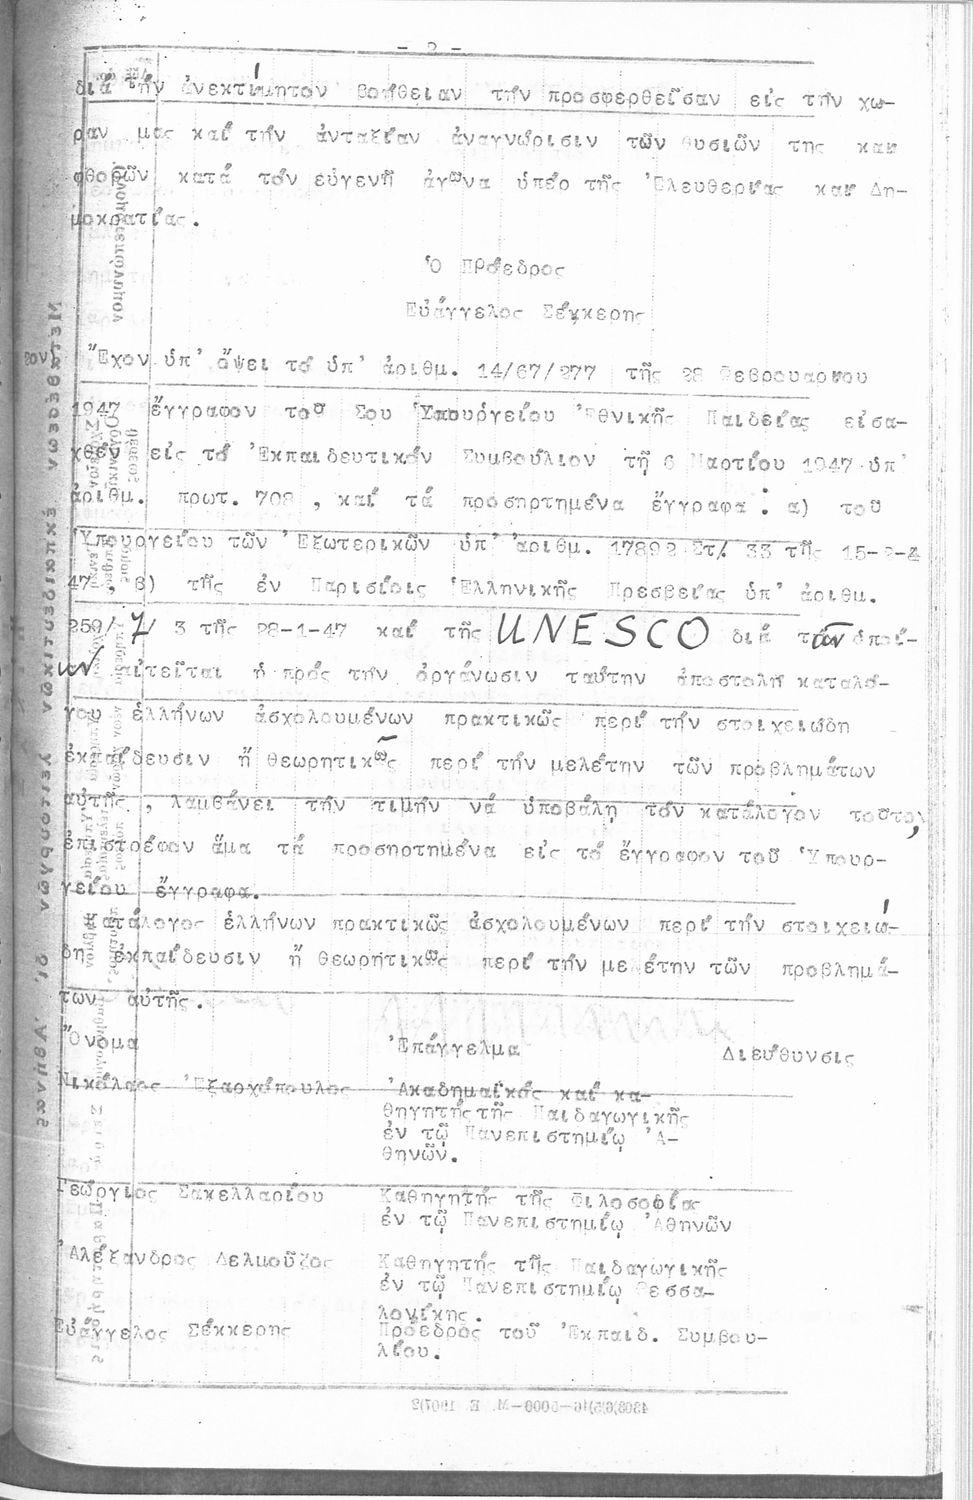 - 2 -
διά τήν ἀνεκτίμητον βοήθειαν τήν προσφερθεῖσαν εἰς τήν χώ-
ραν μας καί τήν ἀνταξίαν ἀναγνώρισιν τῶν θυσιῶν της καί
φθορῶν κατά τόν εὐγενῆ ἀγῶνα ὑπέρ τῆς Ἐλευθερίας καί Δη-
μοκρατίας.
Ὁ Πρόεδρος
Εὐάγγελος Σέκκερης
Ἔχον ὑπ' ὄψει τό ὑπ' ἀριθμ. 14/67/277 τῆς 28 Φεβρουαρίου
1947 ἔγγραφον τοῦ Σου Ὑπουργείου Ἐθνικῆς Παιδείας εἰσα-
χθέν εἰς τό Ἐκπαιδευτικόν Συμβούλιον τῇ 6 Μαρτίου 1947 ὑπ'
ἀριθμ. πρωτ. 708 , καί τά προσηρτημένα ἔγγραφα : α) τοῦ
Ὑπουργείου τῶν Ἐξωτερικῶν ὑπ' ἀριθμ. 17892 Στ/ 33 τῆς 15-2-
47 , β) τῆς ἐν Παρισίοις Ἑλληνικῆς Πρεσβείας ὑπ' ἀριθμ.
259/ 7/ 3 τῆς 28-1-47 καί τῆς UNESCO διά τῶν ὁποί-
ων αἰτεῖται ἡ πρός τήν ὀργάνωσιν ταύτην ἀποστολή καταλό-
γου ἑλλήνων ἀσχολουμένων πρακτικῶς περί τήν στοιχειώδη
ἐκπαίδευσιν ἤ θεωρητικῶς περί τήν μελέτην τῶν προβλημάτων
αὐτῆς , λαμβάνει τήν τιμήν νά ὑποβάλῃ τόν κατάλογον τοῦτον,
ἐπιστρέφον ἅμα τά προσηρτημένα εἰς τό ἔγγραφον τοῦ Ὑπουρ-
γείου ἔγγραφα.
Κατάλογος ἑλλήνων πρακτικῶς ἀσχολουμένων περί τήν στοιχειώ-
δη ἐκπαίδευσιν ἤ θεωρητικῶς περί τήν μελέτην τῶν προβλημά-
των αὐτῆς.
Ὄνομα Ἐπάγγελμα Διεύθυνσις
Νικόλαος Ἐξαρχόπουλος Ἀκαδημαϊκός καί κα-
θηγητής τῆς Παιδαγωγικῆς
ἐν τῷ Πανεπιστημίῳ Ἀ-
θηνῶν.
Γεώργιος Σακελλαρίου Καθηγητής τῆς Φιλοσοφίας
ἐν τῷ Πανεπιστημίῳ Ἀθηνῶν
Ἀλέξανδρος Δελμοῦζος Καθηγητής τῆς Παιδαγωγικῆς
ἐν τῷ Πανεπιστημίῳ Θεσσα-
λονίκης.
Εὐάγγελος Σέκκερης Πρόεδρος τοῦ Ἐκπαιδ. Συμβου-
λίου.